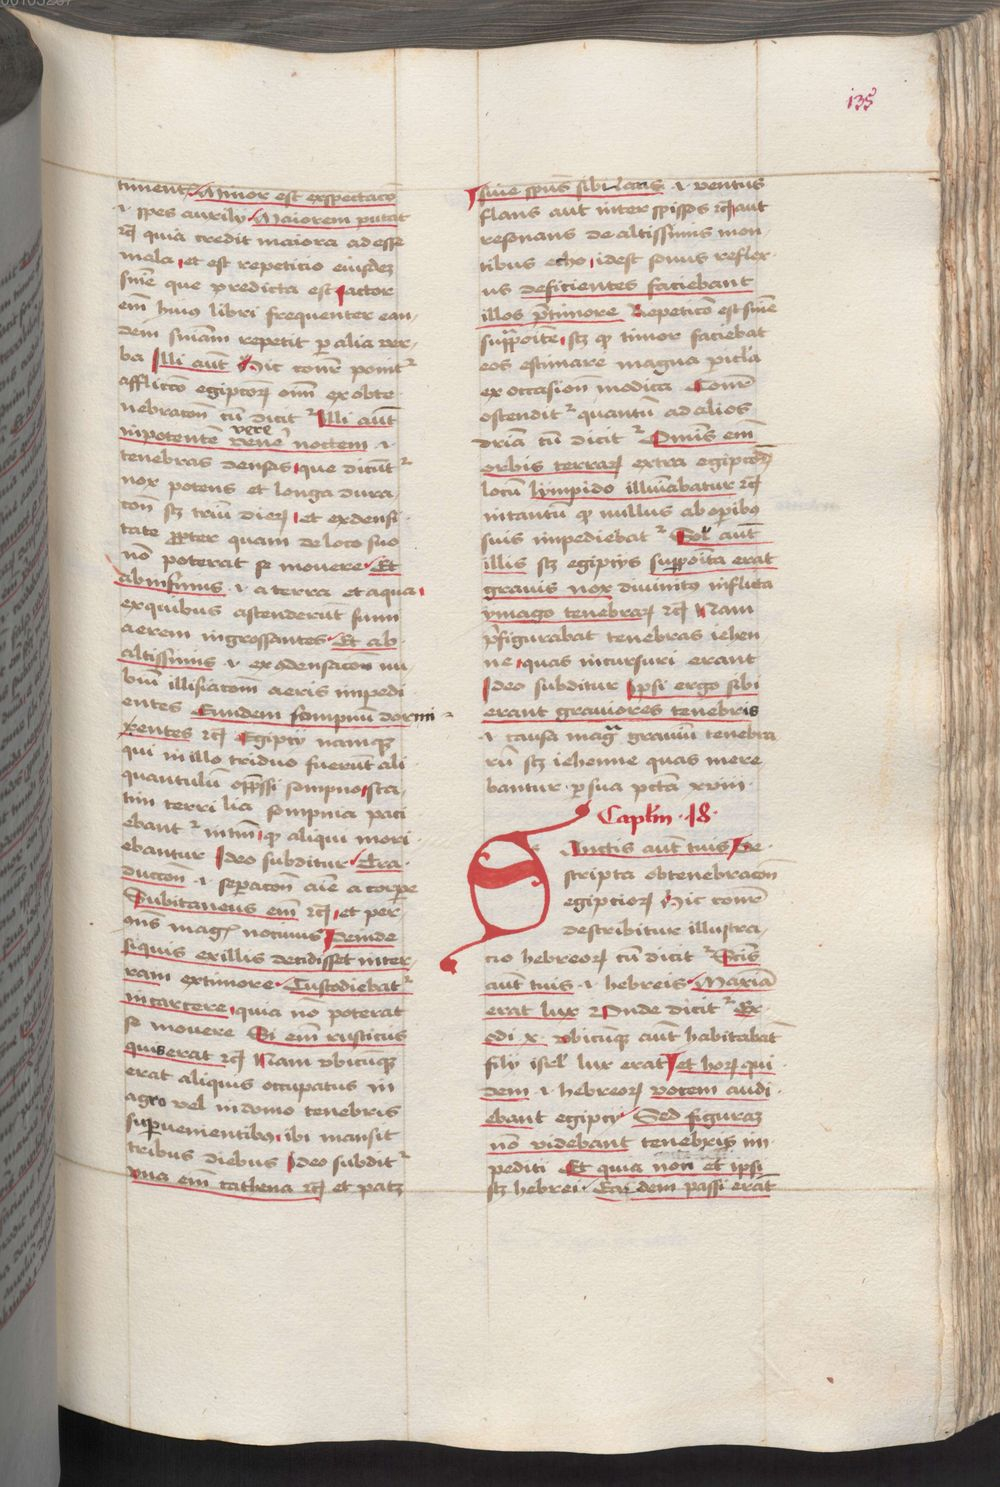 135
timent Minor est exspectacō
⁊ spes auxilij Maiorem putat
rc̄ quia credit maiora adesse
mala et est repeticio eiusdeȝ
snīe que predicta est actor
em̄ huiꝰ libri frequenter ean
dem sniam repetit ꝑ alia ver
ba Illi aut̄ Hic cons̄r ponit᷑
afflictō egiptioꝝ om̄ ex obte
nebracōn cū dicit᷑ Illi aut̄
inpotentē vere venē noctem ⁊
tenebras densas que dicūt᷑
nox potens et longa dura
cōn sȝ triū dieꝝ et ex densi
tate ꝓpter quam de loco suo
nō poterat se mouere Et
ab infimis ⁊ a terra et aqua
ex quibus astenderūt fumi
aerem ingrossantes Et ab
altissimis ⁊ ex ꝯdensacōn nu
biū illisiacōm aeris impedi
entes Eundem sompnū dormi
xentes rc̄ Egipty namqȝ
qui in illo triduo fuerūt ali
quantulū opp̄ssi sompno sta
tim terribilia sompnia paci
ebant᷑ intm̄ ꝙ aliqui mori
ebantur Ideo subditur Tra
ductōn ⁊ seꝑacōn aīe a corꝑe
Subitaneus em̄ rc̄ et per
qn̄s mag᷑ nociuus Deinde
siquis ex illis decidisset inter
ram ex timore Custodiebat᷑
in carcere quia nō poterat
se mouere Si em̄ rusticus
quis erat rc̄ Nam vbicūqȝ
erat aliquis occupatus in
agro vel in domo tenebris
suꝑuenientibꝰ ibi mansit
tribus diebus Ideo subdit᷑
vna em̄ cathena rc̄ et patȝ
Siue spūs sibilans ⁊ ventus
flans aut inter spissos rc̄ aut
resonans de altissimis mon
tibus echo idest sonus reflex
us deficientes faciebant
illos p̄ timore Repeticō est snīe
supp̄oite sȝ ꝙ timor faciebat
eos estimare magna pic̄la
ex occasion modica Cons̄r
ostendit᷑ quantū ad alios
dr̄ia cū dicit᷑ Omnis em̄
orbis terraꝝ extra egiptoꝝ
locū lympido illuīabatur rc̄
in tantū ꝙ nullus ab opibꝰ
suis impediebat᷑ Sol' aut̄
illis sȝ egiptijs supp̄oita erat
grauis nox diuinitꝰ inflicta
ymago tenebraꝝ rc̄ Nam
p̄figurabat tenebras iehen
ne quas incursuri erant
Ideo subditur Ipsi ergo sibi
erant grauiores tenebris
⁊ causa mag᷑ grauiū tenebra
rū sȝ iehenne quas mere
bantur ꝓ sua pctā xviii
Capl̄m 18
Sanctis aut̄ tuis De
scripta obtenebracōn
egiptioꝝ Hic cons̄r
describitur illustra
cio hebreoꝝ cū dicit᷑ Sc̄is
aut̄ tuis ⁊ hebreis Maxiā
erat lux Vnde dicit᷑ Ex
odi x vbicūqȝ aut̄ habitabāt
filij isrl' lux erat et hoꝝ qui
dem ⁊ hebreoꝝ vocem audi
ebant egiptij Sed figuraȝ
nō videbant tenebris im
pediti Et quia non et ipsi
sȝ hebrei Eadem passi erāt